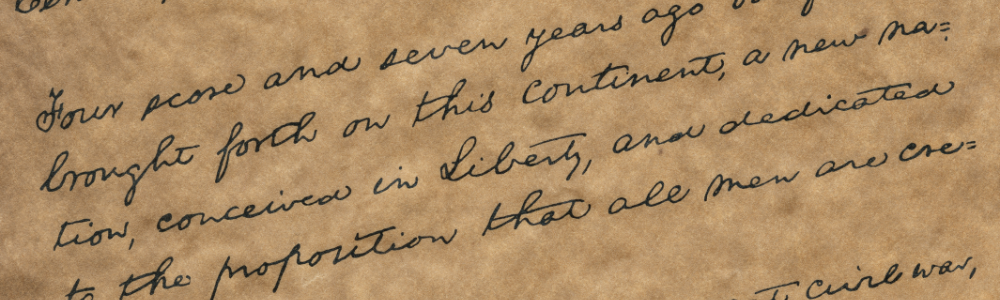 Four score and seven years ago
brought forth on this continent, a new na=
tion, conceived in Liberty, and dedicated
to the proposition that all men are cre=
civil war,